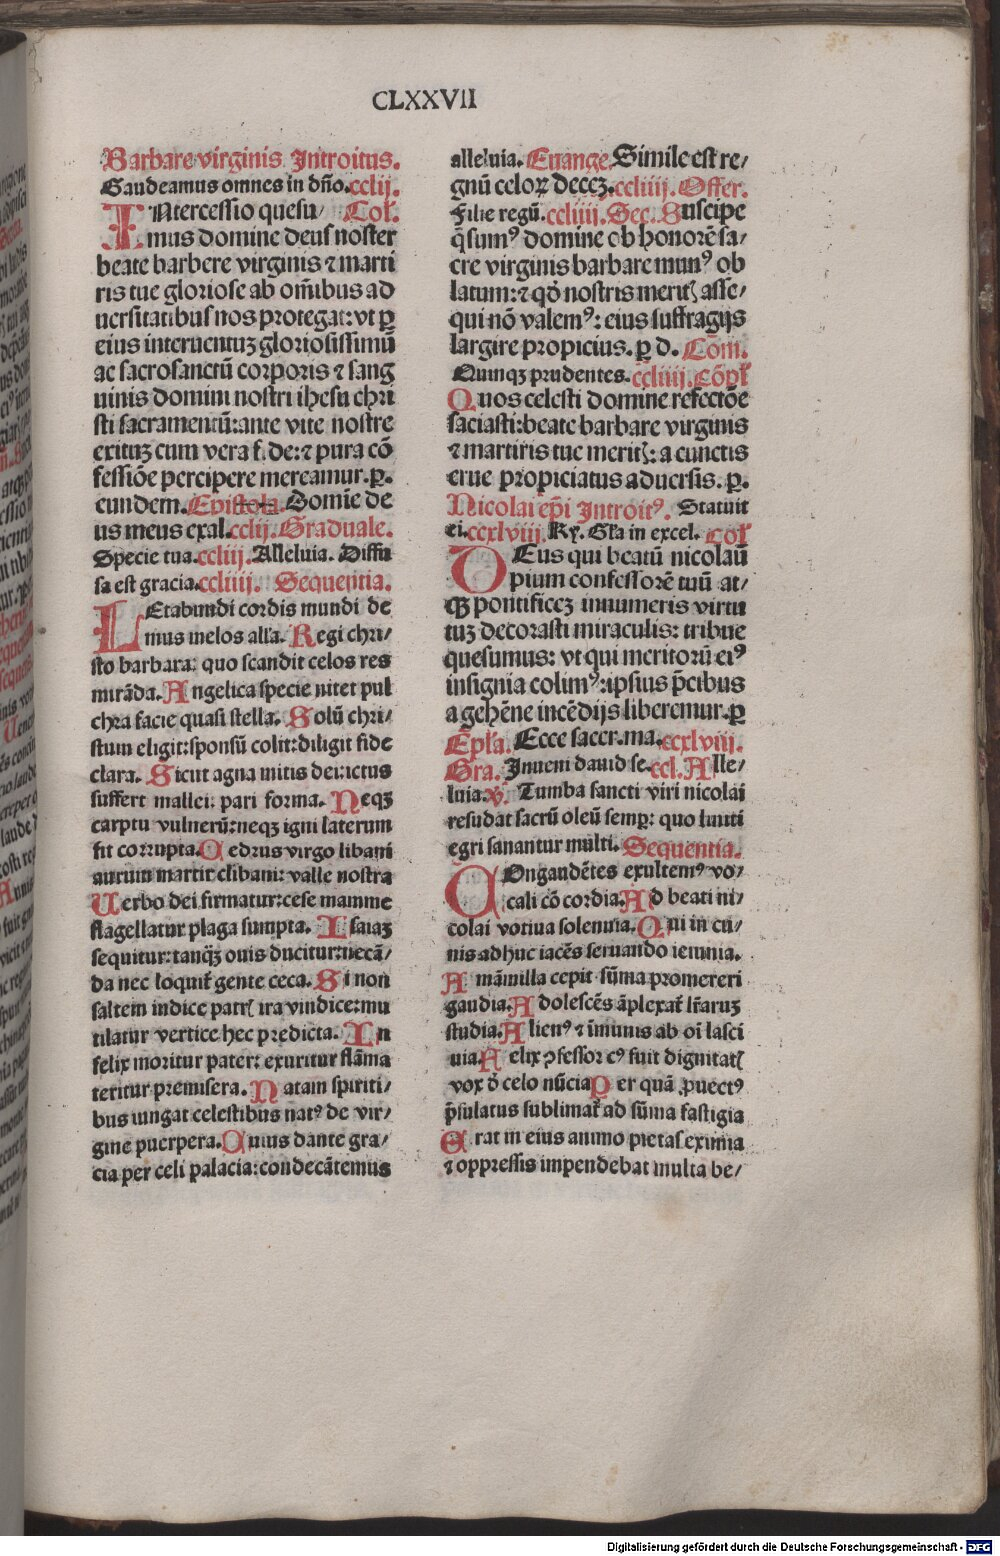 CLXXVII
Barbare virginis Introitus.
Gaudeamus omnes in dño.cclij.
INtercessio quesu/ Col̃.
mus domine deus noster
beate barbere virginis ⁊ marti
ris tue gloriose ab om̃ibus ad
uersitatibus nos protegat: vt ꝑ
eius interuentuꝫ gloriosissimũ
ac sacrosanctũ corporis ⁊ sang
uinis domini nostri ihesu chri
sti sacramentũ: ante vite nostre
exituꝫ cum vera f. de: ⁊ pura cõ
fessiõe percipere mereamur. ꝑ.
eundem. Epistola. Domĩe de
us meus exal. cclij. Graduale.
Specie tua. ccliij. Alleluia. Diffu
sa est gracia. ccliiij. Sequentia.
LEtabundi cordis mundi de
mus melos all'a. Regi chri/
sto barbara: quo scandit celos res
mirãda. Angelica specie nitet pul
chra facie quasi stella. Solũ chri/
stum eligit: sponsũ colit: diligit fide
clara. Sicut agna mitis dei: ictus
suffert mallei: pari forma. Neqꝫ
carptu vulnerũ: neqꝫ igni laterum
fit corrupta. Cedrus virgo libani
aurum martir clibani: valle nostra
Uerbo dei firmatur: cese mamme
flagellatur plaga sumpta. Isaiaꝫ
sequitur: tanqꝫ ouis ducitur: necã/
da nec loquit̃ gente ceca. Si non
saltem indice patrꝭ ira vindice: mu
tilatur vertice hec predicta. In
felix moritur pater: exuritur flãma
teritur premisera. Natam spiriti/
bus iungat celestibus natꝰ de vir/
gine puerpera. Cuius dante gra/
cia per celi palacia: condecãtemus
alleluia. Euange. Simile est re/
gnũ celoꝝ deceꝫ. ccliiij. Offer.
Filie regũ. ccliiij. Sec. Suscipe
q̃sumꝰ domine ob honorẽ sa/
cre virginis barbare munꝰ ob
latum: ⁊ qď nostris meritꝭ asse/
qui nõ valemꝰ: eius suffragijs
largire propicius. ꝑ d. Com̃.
Quinqꝫ prudentes. ccliiij. Cõpl̃
Quos celesti domine refectõe
saciasti: beate barbare virginis
⁊ martiris tue meritꝭ: a cunctis
erue propiciatus aduersis. ꝑ.
Nicolai ep̃i Introitꝰ. Statuit
ei. ccxlviij. Ky. Gl'a in excel. Col̃
DEus qui beatũ nicolaũ
pium confessorẽ tuũ at/
qꝫ pontificeꝫ innumeris virtu
tuꝫ decorasti miraculis: tribue
quesumus: vt qui meritorũ eiꝰ
insignia colimꝰ: ipsius p̃cibus
a gehẽne incẽdijs liberemur. ꝑ
Epl'a. Ecce sacer. ma. ccxlviij.
Gra. Inueni dauid se. ccl. Alle/
luia. ꝟ. Tumba sancti viri nicolai
resudat sacrũ oleũ semꝑ: quo liniti
egri sanantur multi. Sequentia.
COngaudẽtes exultemꝰ vo/
cali cõcordia. Ad beati ni/
colai votiua solennia. Qui in cu/
nis adhuc iacẽs seruando ieiunia.
A mãmilla cepit sũma promereri
gaudia. Adolescẽs ãplexat̃ lr̃aruꝫ
studia. Alienꝰ ⁊ ĩmunis ab oĩ lasci
uia. Felix ꝯfessor cꝰ fuit dignitatꝭ
vox ď celo nũcia Per quã ꝓuectꝰ
p̃sulatus sublimat̃ ad sũma fastigia
Erat in eius animo pietas eximia
⁊ oppressis impendebat multa be/
Digitalisierung gefördert durch die Deutsche Forschungsgemeinschaft - DFG